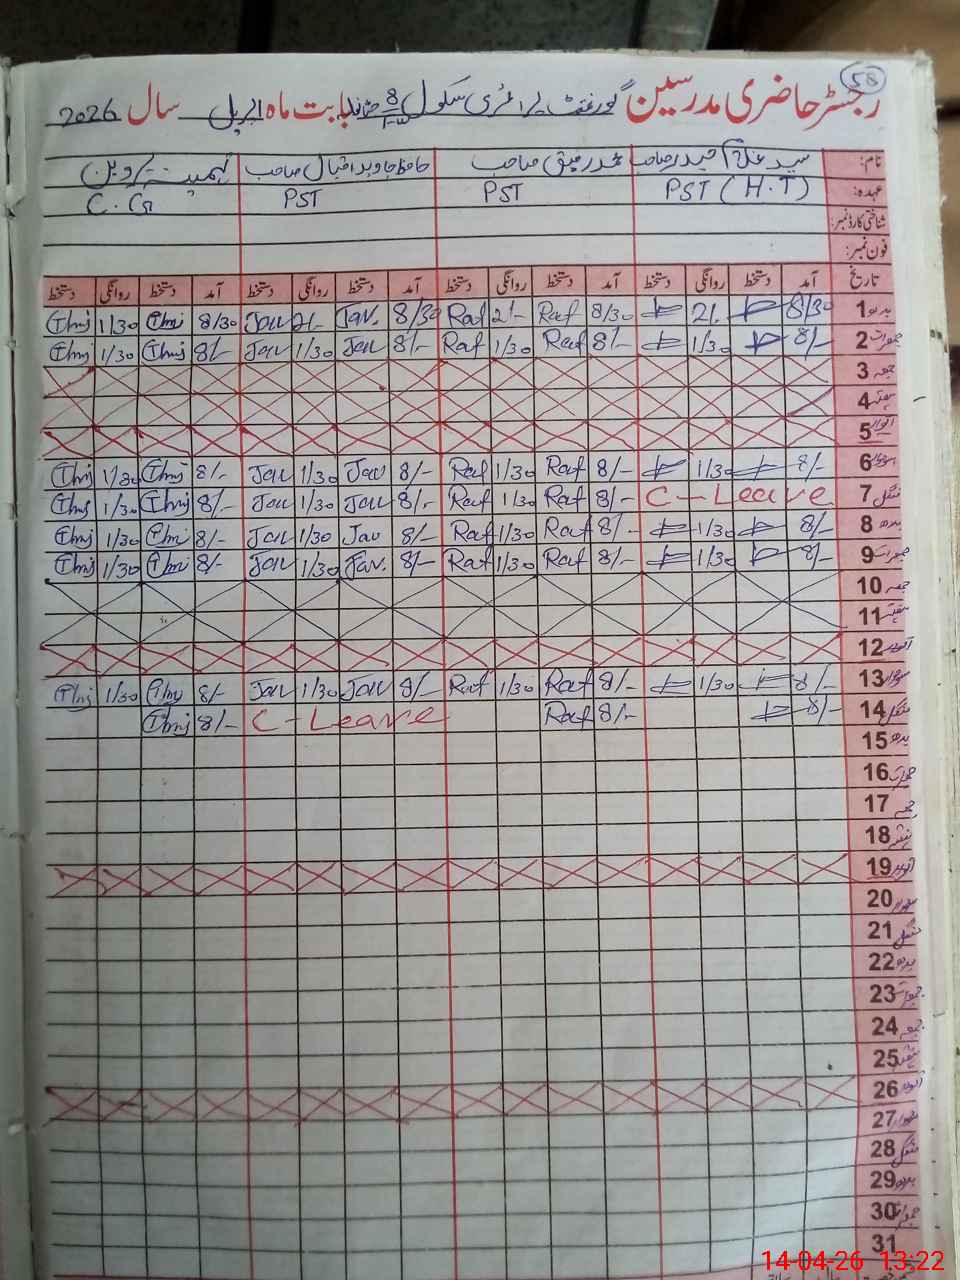 58
رجسٹر حاضری مدرسین گورنمنٹ پرائمری سکول 8 بابت ماہ اپریل سال 2026
نام: سید غلام حیدر صاحب محمد رفیق صاحب حافظ جاوید اقبال صاحب
عہدہ: PST (H.T) PST PST C.G
شناختی کارڈ نمبر:
فون نمبر:
تاریخ آمد دستخط روانگی دستخط آمد دستخط روانگی دستخط آمد دستخط روانگی دستخط آمد دستخط روانگی دستخط
1 بدھ 8/30 2/- 8/30 Raf 2/- Raf 8/30 Jav. 2/- Jav 8/30 Thmj 1/30 Thmj
2 جمعرات 8/- 1/30 8/- Raf 1/30 Raf 8/- Jav 1/30 Jav 8/- Thmj 1/30 Thmj
3 جمعہ
4 ہفتہ
5 اتوار
6 سوموار 8/- 1/30 8/- Raf 1/30 Raf 8/- Jav 1/30 Jav 8/- Thmj 1/30 Thmj
7 منگل C - Leave 8/- Raf 1/30 Raf 8/- Jav 1/30 Jav 8/- Thmj 1/30 Thmj
8 بدھ 8/- 1/30 8/- Raf 1/30 Raf 8/- Jav 1/30 Jav 8/- Thmj 1/30 Thmj
9 جمعرات 8/- 1/30 8/- Raf 1/30 Raf 8/- Jav. 1/30 Jav 8/- Thmj 1/30 Thmj
10 جمعہ
11 ہفتہ
12 اتوار
13 سوموار 8/- 1/30 8/- Raf 1/30 Raf 8/- Jav 1/30 Jav 8/- Thmj 1/30 Thmj
14 منگل 8/- 8/- Raf C - Leave 8/- Thmj
15 بدھ
16 جمعرات
17 جمعہ
18 ہفتہ
19 اتوار
20 سوموار
21 منگل
22 بدھ
23 جمعرات
24 جمعہ
25 ہفتہ
26 اتوار
27 سوموار
28 منگل
29 بدھ
30 جمعرات
31
14-04-26 13:22